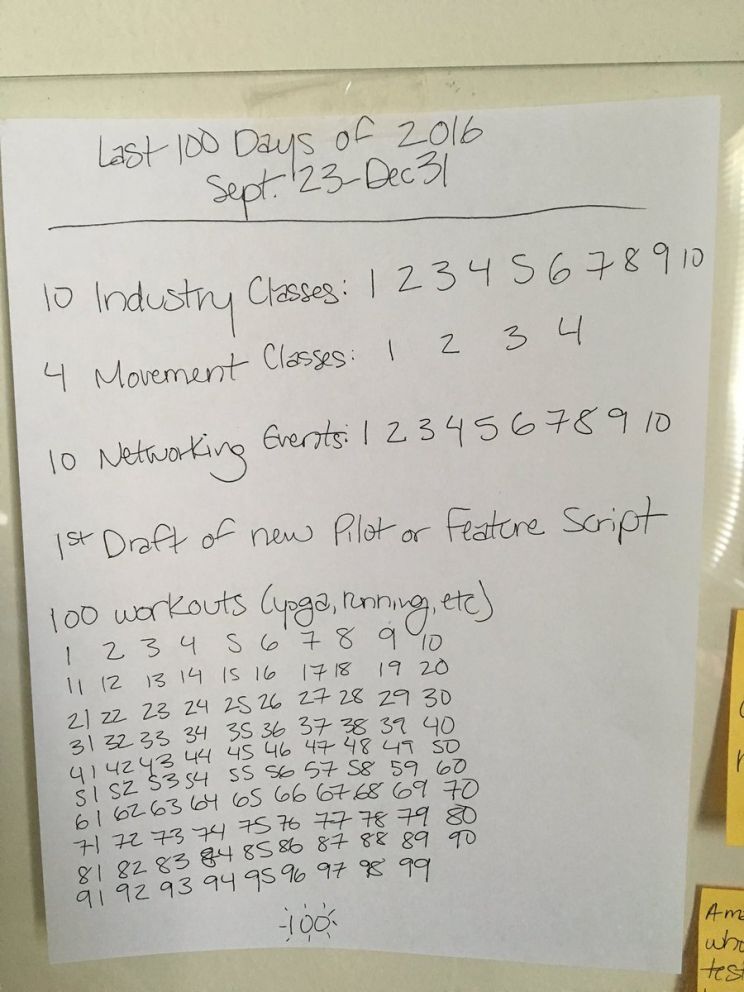 Last 100 Days of 2016
Sept. 23-Dec 31
10 Industry Classes: 1 2 3 4 5 6 7 8 9 10
4 Movement Classes: 1 2 3 4
10 Networking Events: 1 2 3 4 5 6 7 8 9 10
1st Draft of new Pilot or Feature Script
100 workouts (yoga, running, etc)
1 2 3 4 5 6 7 8 9 10
11 12 13 14 15 16 17 18 19 20
21 22 23 24 25 26 27 28 29 30
31 32 33 34 35 36 37 38 39 40
41 42 43 44 45 46 47 48 49 50
51 52 53 54 55 56 57 58 59 60
61 62 63 64 65 66 67 68 69 70
71 72 73 74 75 76 77 78 79 80
81 82 83 84 85 86 87 88 89 90
91 92 93 94 95 96 97 98 99
100
who
test